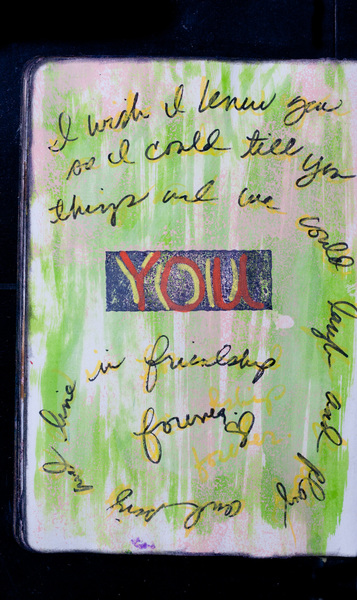 I wish I knew you
so I could till you
things and we
could
laugh and play
and sing
and live
in friendship
forever
YOU